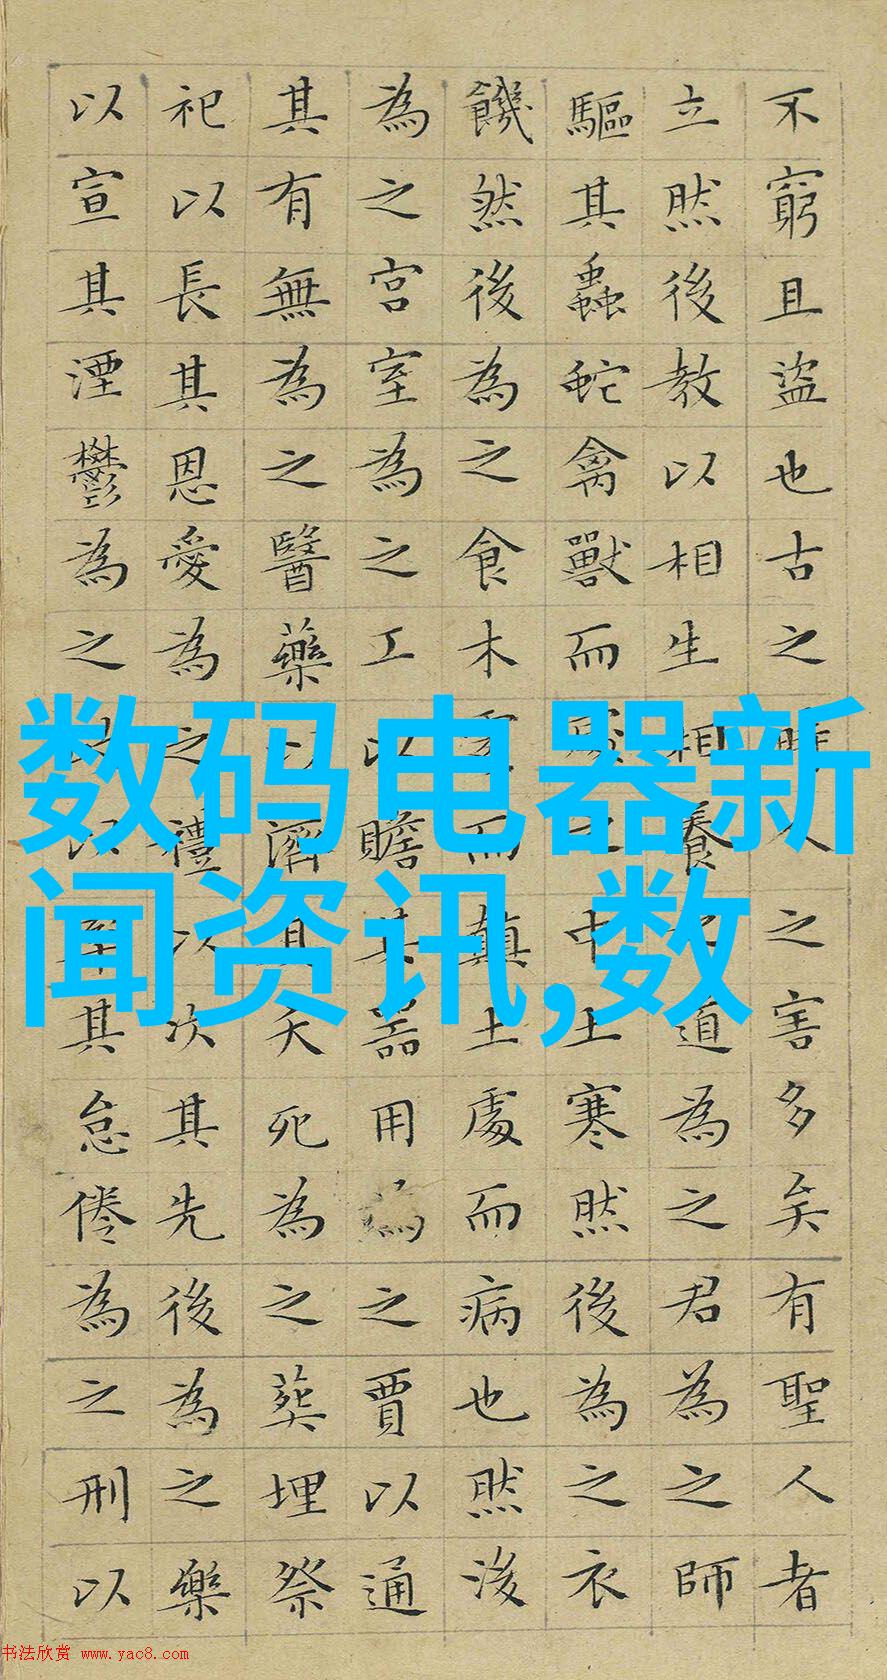 不窮且盜也古之時人之害多矣有聖人者
立然後教以相生相養之道為之君為之師
驅其蟲蛇禽獸而處之中土寒然後為之衣
饑然後為之食木處而顛土處而病也然後
為之宮室為之工以贍其器用為之賈以通
其有無為之醫藥以濟其夭死為之葬埋祭
祀以長其恩愛為之禮以次其先後為之樂
以宣其湮鬱為之以率其怠倦為之刑以
数码电器新
闻资讯,数
书法欣赏 www.yac8.com